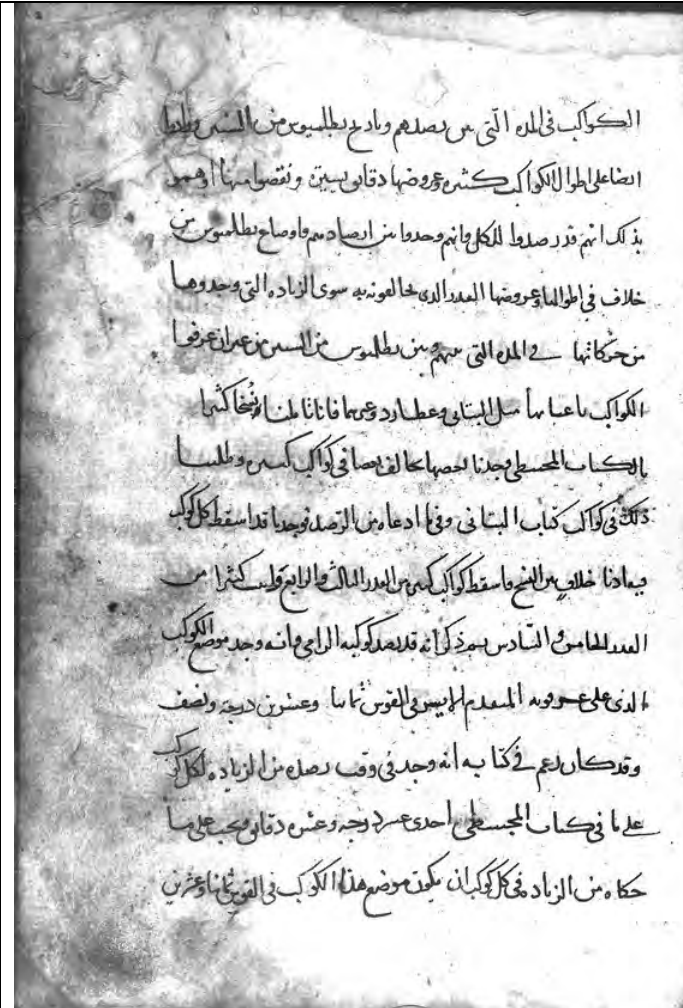 الكواكب في المده التي بين رصدهم وتاريخ بطلميوس من السنين وزادوا
ايضا على اطوال الكواكب كثيره وعروضها دقايق يسيره ونقصوا منها اوهموا
بذلك انهم قد رصدوا الكل وانهم وجدوا بين ارصادهم واوضاع بطلميوس من
خلاف في اطوالها وعروضها القدر الذي خالفونه به سوى الزياده التي وجدوها
من حركاتها في المده التي بينهم وبين بطلميوس من السنين من غير ان عرفوا
الكواكب باعيانها مثل البتاني وعطارد وغيرهما فانا تاملنا نسخا كثيرا
بالكتاب المجسطي وجدنا بعضها يخالف بعضا في كواكب كثيره وطلبنا
ذلك في كواكب كتاب البتاني وفيما ادعاه من الرصد فوجدنا قد اسقط كل كوكب
خلاف بين النسخ فاسقط كواكب كثيره من القدر الثالث والرابع كثيرا من
القدر الخامس والسادس ثم ذكر انه قد رصد كوكبه الرامي وانه وجد موضع الكوكب
الذي على عرقوبه المتقدم الايسر في القوس ثمانيا وعشرين درجه ونصف
وقد كان زعم في كتابه انه وجد في وقت رصده من الزياده لكل كوكب
على ما في كتاب المجسطي احدى عشر درجه وعشر دقايق ويجب على ما
حكاه من الزياده في كل كوكب ان يكون موضع هذا الكوكب في القوس ثمانيا وعشرين